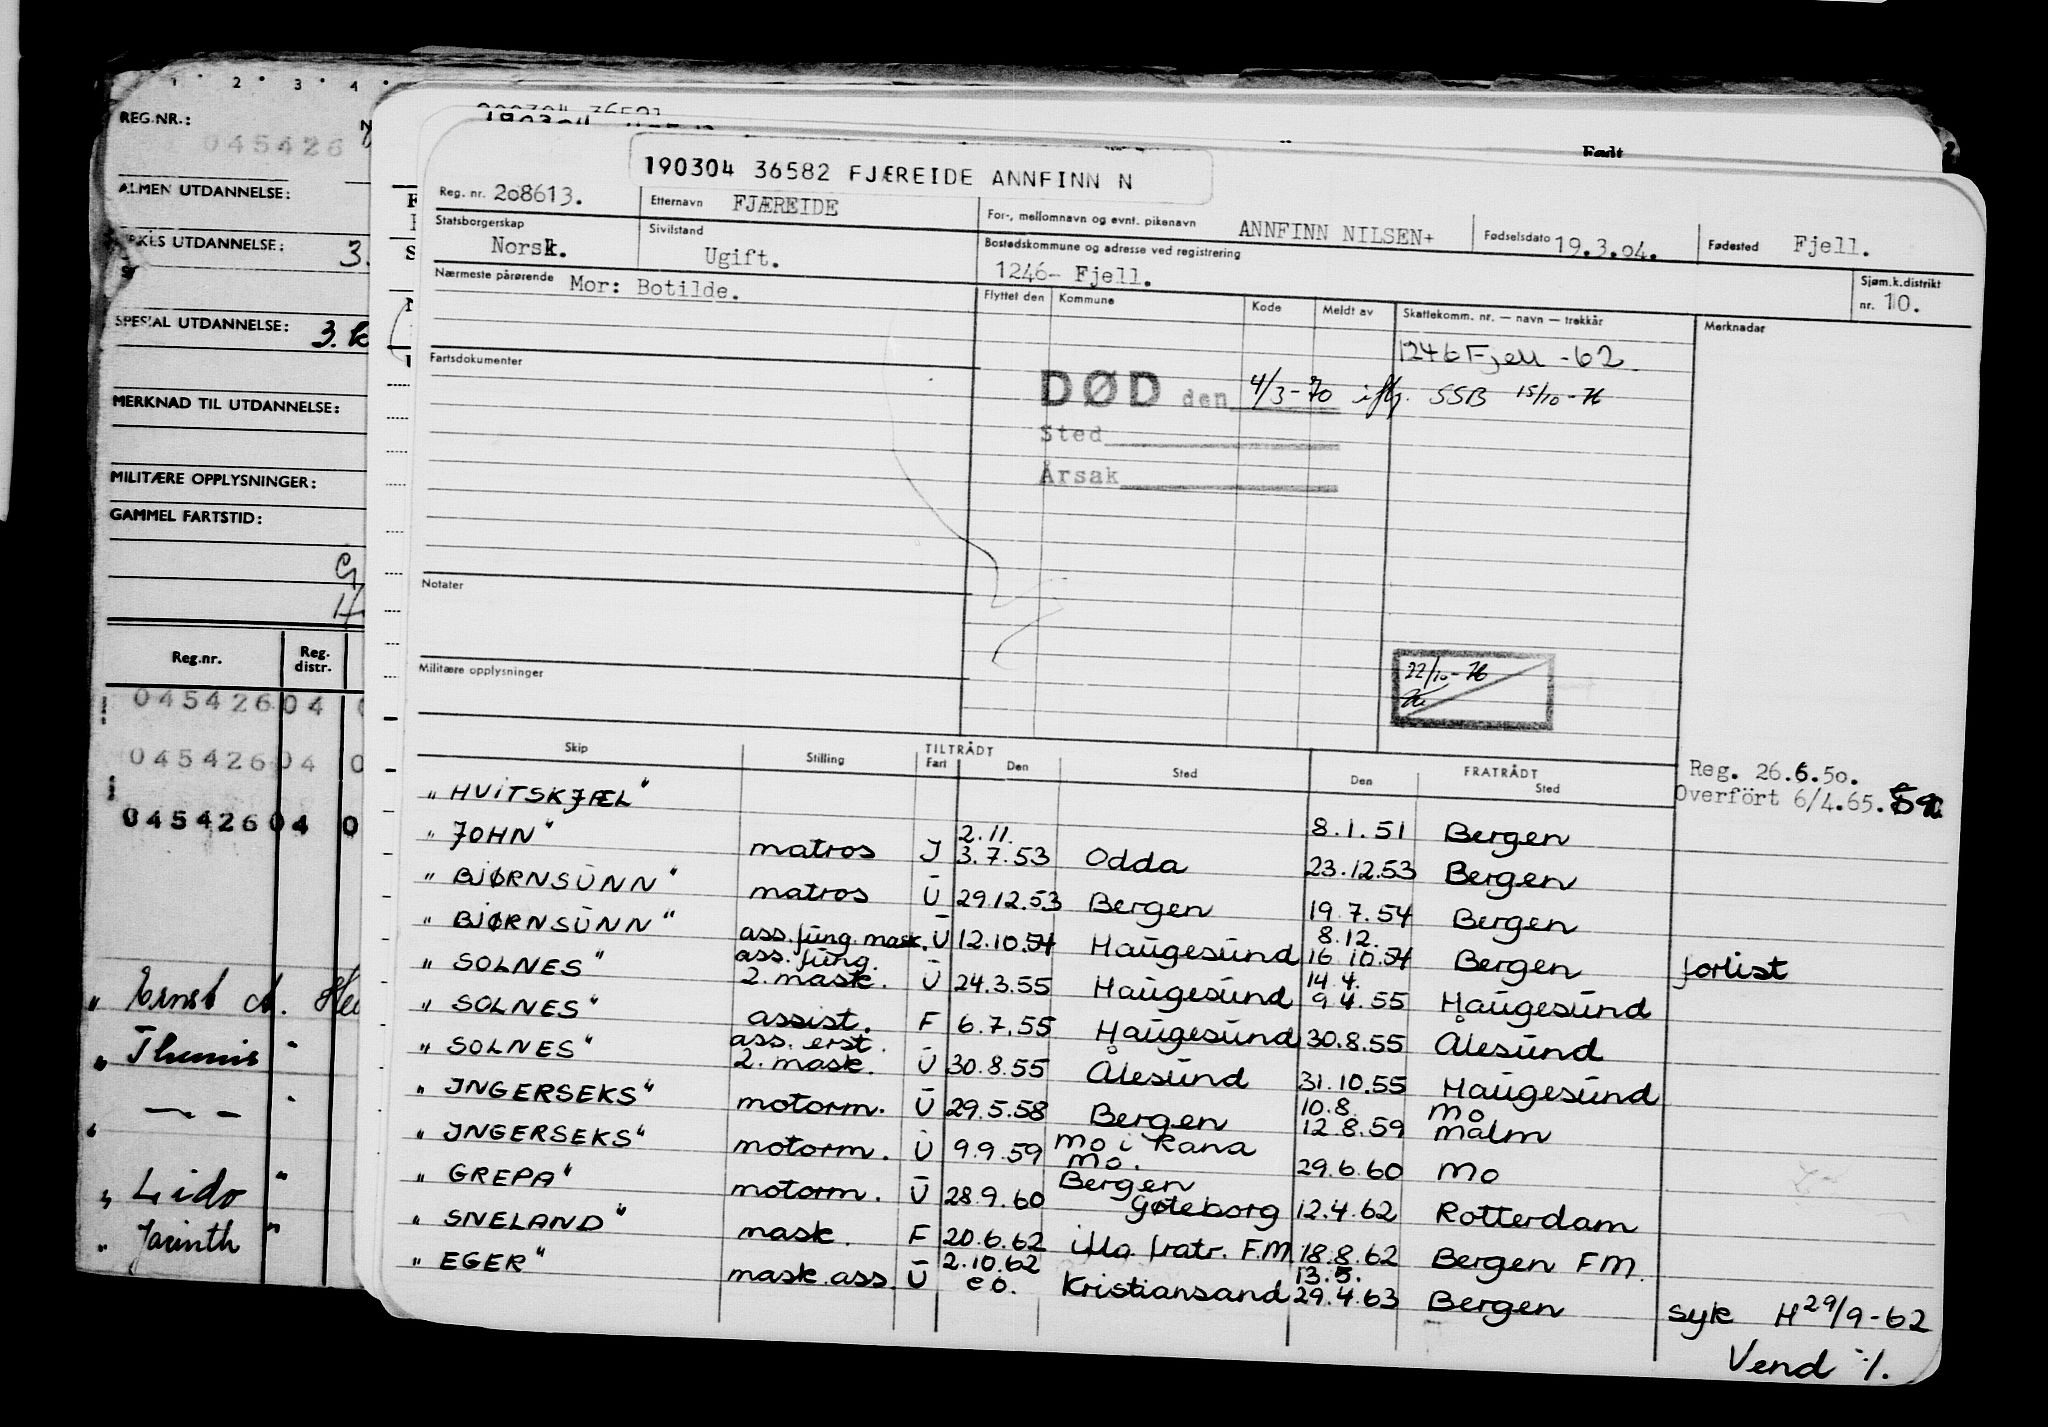 1 2 3 4
REG.NR.:
045426
ALMEN UTDANNELSE:
UTDANNELSE: 3.
SPESIAL UTDANNELSE: 3. k
MERKNAD TIL UTDANNELSE:
MILITÆRE OPPLYSNINGER:
GAMMEL FARTSTID:
Reg.nr. Reg. distr.
045426 04 0
045426 04 0
045426 04 0
" Ernst A.
" Themis "
" — "
" Lido "
" Jacinth "
190304 36591
Født
190304 36582 FJÆREIDE ANNFINN N
Reg. nr. 208613. Etternavn FJÆREIDE For-, mellomnavn og evnt. pikenavn ANNFINN NILSEN+ Fødselsdato 19.3.04. Fødested Fjell.
Statsborgerskap Norsk. Sivilstand Ugift. Bostedskommune og adresse ved registrering 1246- Fjell. Sjøm.k.distrikt nr. 10.
Nærmeste pårørende Mor: Botilde. Flyttet den Kommune Kode Meldt av Skattekomm. nr. — navn — trekkår Merknadar
1246 Fjell -62
Fartsdokumenter
DØD den 4/3-70 iflg. SSB 15/10-76
Sted
Årsak
Notater
Militære opplysninger
22/10-76
Skip Stilling TILTRÅDT Fart Den Sted FRATRÅDT Den Sted
Reg. 26.6.50.
Overfört 6/4.65.
" HVITSKJÆL" 8.1.51 Bergen
" JOHN" matros J 2.11. 3.7.53 Odda 23.12.53 Bergen
" BJØRNSUNN" matros U 29.12.53 Bergen 19.7.54 Bergen
" BJØRNSUNN" ass. fung. mask. U 12.10.54 Haugesund 8.12. 16.10.54 Bergen forlist
" SOLNES" ass. fung. 2. mask. U 24.3.55 Haugesund 14.4. 9.4.55 Haugesund
" SOLNES" assist. F 6.7.55 Haugesund 30.8.55 Ålesund
" SOLNES" ass. erst. 2. mask. U 30.8.55 Ålesund 31.10.55 Haugesund
" INGERSEKS" motorm. U 29.5.58 Bergen 10.8. 12.8.59 Mo Malm
" INGERSEKS" motorm. U 9.9.59 Mo i Rana Mo. 29.6.60 Mo
" GREPA" motorm. U 28.9.60 Bergen Gøteborg 12.4.62 Rotterdam
" SNELAND" mask. F 20.6.62 iflg. fratr. F.M 18.8.62 Bergen F.M.
" EGER" mask. ass. U 2.10.62 e o. Kristiansand 13.5. 29.4.63 Bergen syk H 29/9-62
Vend ./.